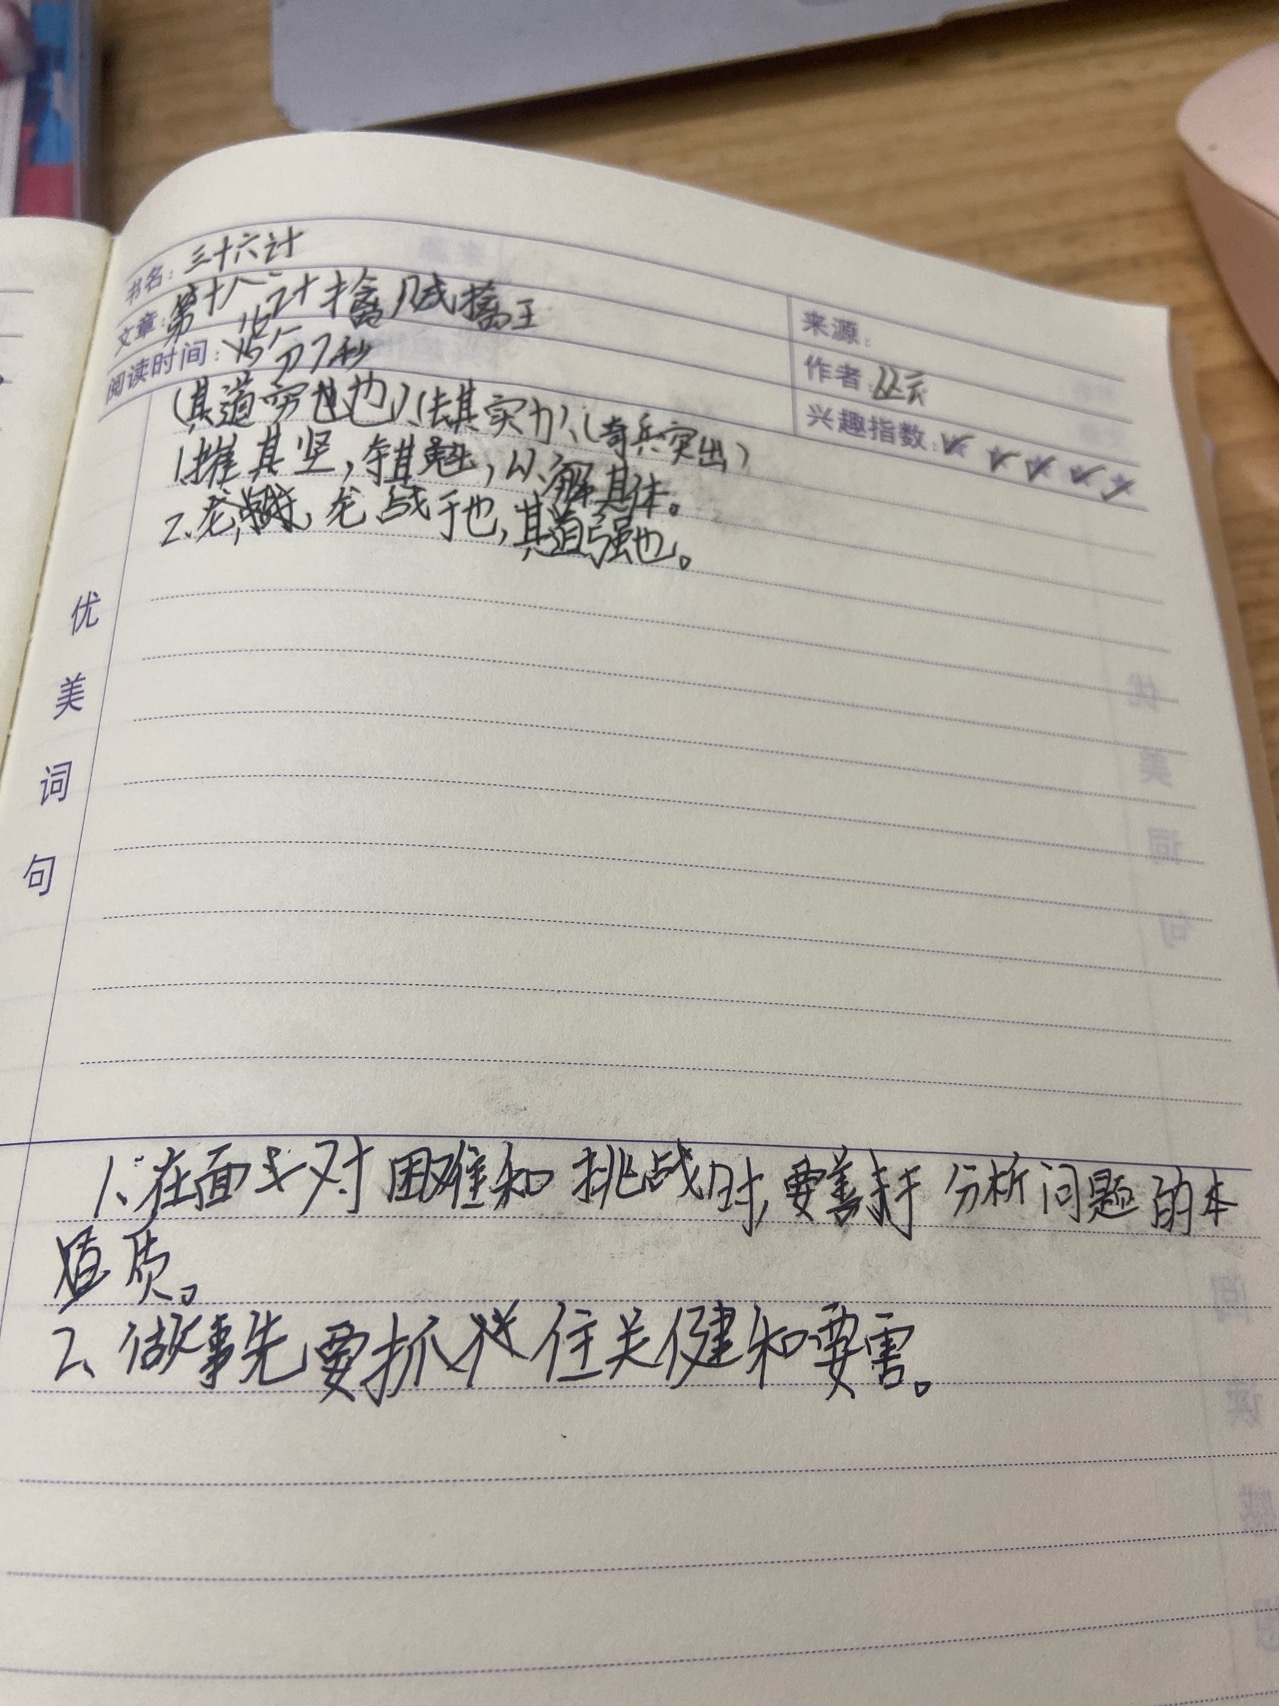 书名：三十六计
文章：第十八计擒贼擒王
来源：
阅读时间：15分7秒
作者
兴趣指数：
(其道穷也)、(去其实力)、(奇兵突出)
1.摧其坚，夺其魁，以解其体。
2.龙战于也，其道强也。
优美词句
1、在面对困难和挑战时，要善于分析问题的本
质。
2、做事先要抓住关健和要害。